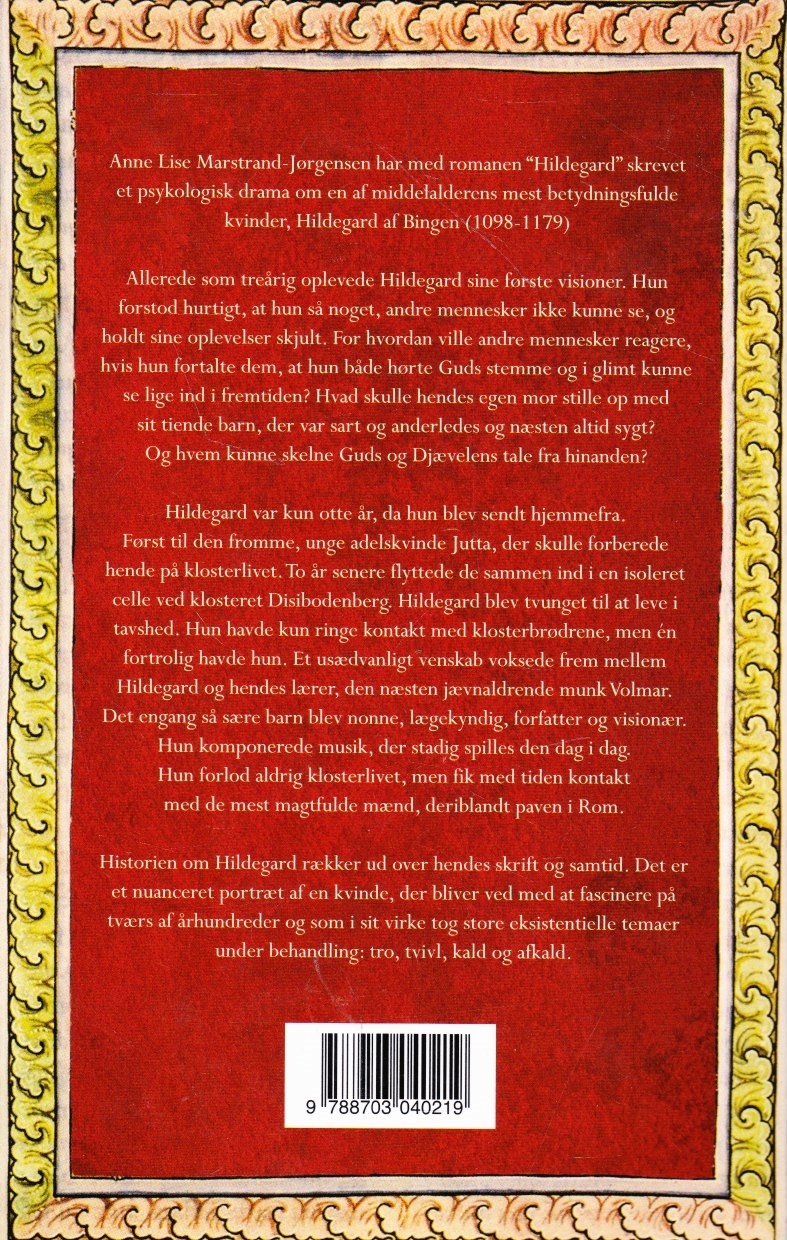 Anne Lise Marstrand-Jørgensen har med romanen “Hildegard” skrevet
et psykologisk drama om en af middelalderens mest betydningsfulde
kvinder, Hildegard af Bingen (1098-1179)
Allerede som treårig oplevede Hildegard sine første visioner. Hun
forstod hurtigt, at hun så noget, andre mennesker ikke kunne se, og
holdt sine oplevelser skjult. For hvordan ville andre mennesker reagere,
hvis hun fortalte dem, at hun både hørte Guds stemme og i glimt kunne
se lige ind i fremtiden? Hvad skulle hendes egen mor stille op med
sit tiende barn, der var sart og anderledes og næsten altid sygt?
Og hvem kunne skelne Guds og Djævelens tale fra hinanden?
Hildegard var kun otte år, da hun blev sendt hjemmefra.
Først til den fromme, unge adelskvinde Jutta, der skulle forberede
hende på klosterlivet. To år senere flyttede de sammen ind i en isoleret
celle ved klosteret Disibodenberg. Hildegard blev tvunget til at leve i
tavshed. Hun havde kun ringe kontakt med klosterbrødrene, men én
fortrolig havde hun. Et usædvanligt venskab voksede frem mellem
Hildegard og hendes lærer, den næsten jævnaldrende munk Volmar.
Det engang så sære barn blev nonne, lægekyndig, forfatter og visionær.
Hun komponerede musik, der stadig spilles den dag i dag.
Hun forlod aldrig klosterlivet, men fik med tiden kontakt
med de mest magtfulde mænd, deriblandt paven i Rom.
Historien om Hildegard rækker ud over hendes skrift og samtid. Det er
et nuanceret portræt af en kvinde, der bliver ved med at fascinere på
tværs af århundreder og som i sit virke tog store eksistentielle temaer
under behandling: tro, tvivl, kald og afkald.
9 788703 040219